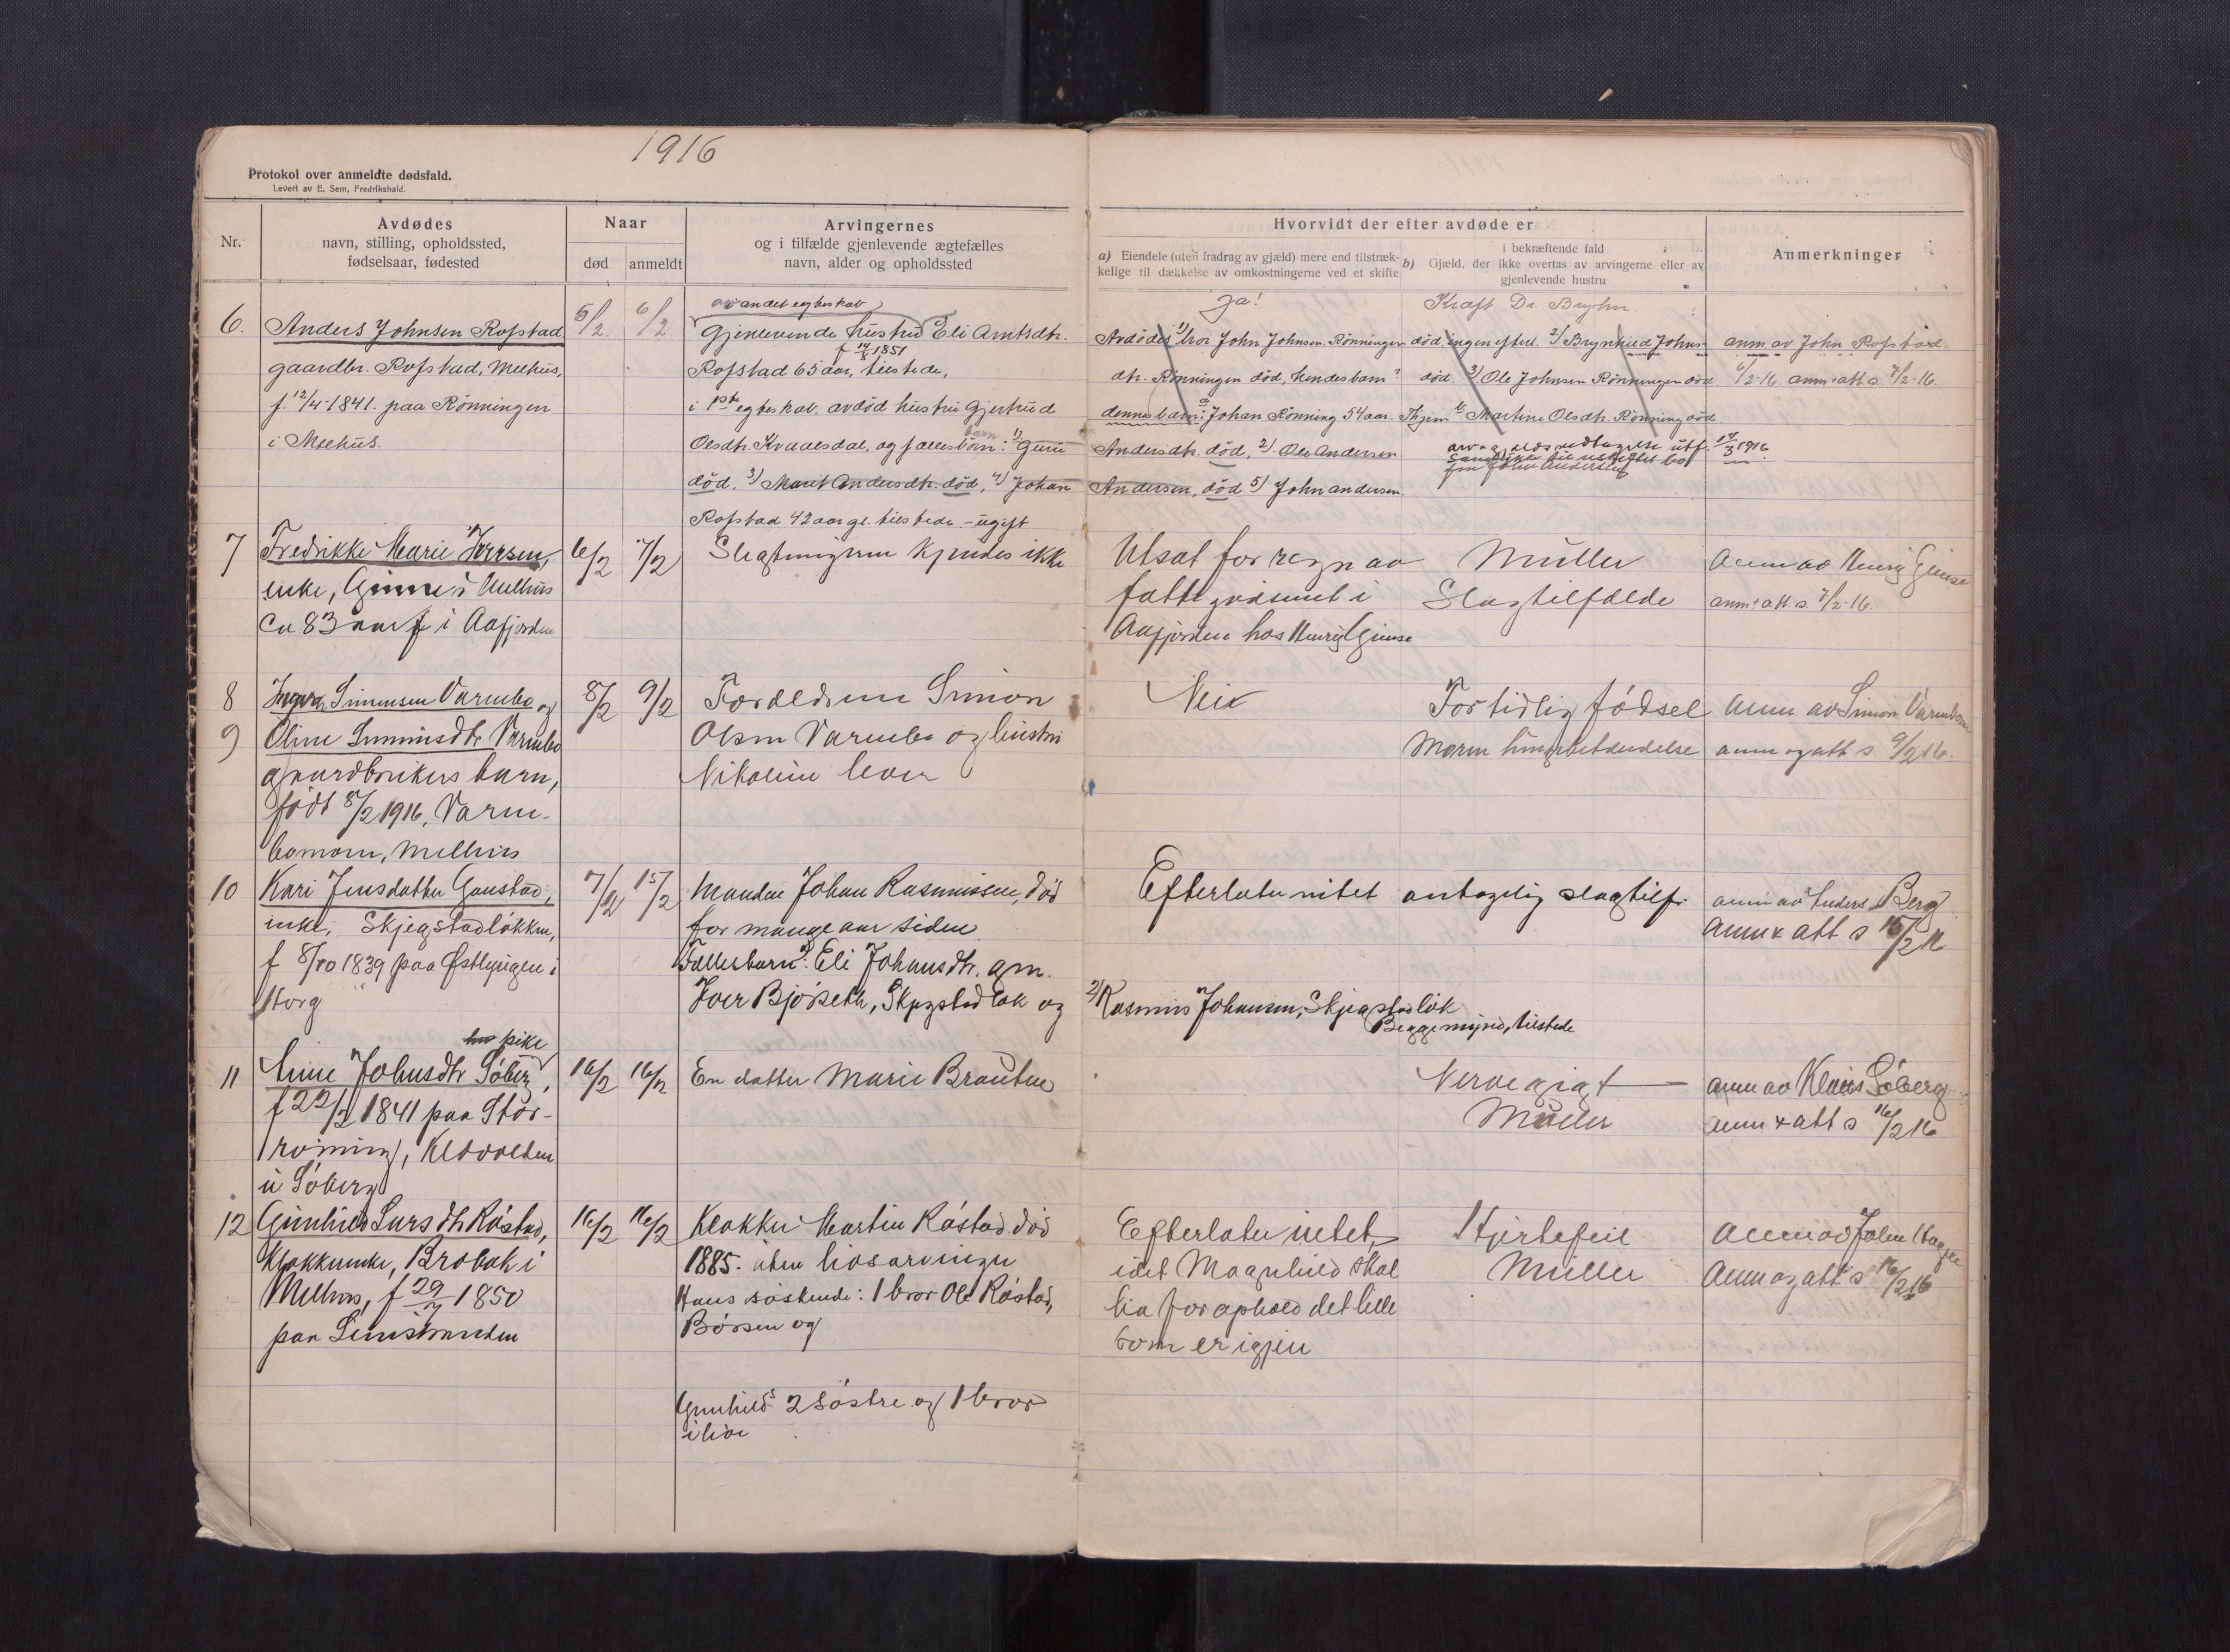 1916
Protokol over anmeldte dødsfald.
Levert av E. Sem, Fredrikshald.
Nr.
Avdødes
navn, stilling, opholdssted,
fødselsaar, fødested
Naar
død
anmeldt
Arvingernes
og i tilfælde gjenlevende ægtefælles
navn, alder og opholdssted
Hvorvidt der efter avdøde er
a) Eiendele (uten fradrag av gjæld) mere end tilstræk-
kelige til dækkelse av omkostningerne ved et skifte
i bekræftende fald
b) Gjæld, der ikke overtas av arvingerne eller av
gjenlevende hustru
Anmerkninger
6.
Anders Johnsen Rofstad
gaardbr. Rofstad, Melhus,
f. 12/4-1841. paa Rönningen
i Melhus.
5/2
6/2
av andet egteskab
Gjenlevende hustru Eli Arntsdtr.
f 14/8 1851
Rofstad 65 aar, tilstede,
i 1ste egteskab. avdöd hustru Gjertrud
Olsdtr. Kvaalsdal, og fælles börn: 1) Guru
död. 3) Marit Andersdtr. död, 4) Johan
Rofstad 42 aar gl. tilstede - ugift
Ja!
Kræft. Dr. Bryhn.
Avdödes 1) bror John Johnsen Rönningen död, ingen efterl. 2) Brynhild Johns-
dtr. Rönningen död, hendes barn? död 3) Ole Johnsen Rönningen död
dennes barn: a Johan Rönning 54 aar. Thjem b Martine Olsdtr. Rönning död
Andersdtr. död, 2). Ole Andersen
Andersen, död 5) John Andersen.
arv-og uds utf. 14/3 1916
anm. av John Rofstad.
6/2-16 anm+att s 7/2-16.
7
Fredrikke Marie Iversen,
enke, Gimse i Melhus
Ca 83 aar f i Aafjorden
6/2
7/2
Slegtningerne kjendes ikke
Utsat for regn av
fattigvæsenet i
Aafjorden hos Henrij Gimse
Müller
Slagtilfælde
Anm av Henrij Gimse
anm+att s 7/2-16.
8
9
Ingvar Simonsen Varmbo og
Oline Simonsdtr Varmbo
gaardbrukers barn,
födt 8/2 1916, Varm-
bomoen, Melhus
8/2
9/2
Forældrene Simon
Olsen Varmbo og hustru
Nikoline lever
Nei
For tidlig födsel
anm av Simon Varmboen
anm og att s 9/2 16.
10
Kari Jensdatter Gaustad,
enke, Skjegstadlökken,
f 8/10 1839 paa Östlyngen i
Horg
7/2
15/2
Manden Johan Rasmussen, död
for mange aar siden
Fællesbarn: 1) Eli Johansdtr. gm.
Iver Bjørseth, Skjegstadlök og
Efterlater intet
antagelig slagtilf.
2) Rasmus Johansen, Skjegstadlök
Begge myndi, tilstede
anm av Anders Berg
Anm x att s 15/2 16
11
pike
Anne Johnsdtr Söberg,
f 22/2 1841 paa Stor-
röning, Kløvvolden
u Söberg
16/2
16/2
En datter Marie Brauten
Nervegigt
Müller
anm av Klaus Söberg
anm + att s 16/2 16
12
Gunhild Larsdtr Råstad,
Klokkerenke, Brobak i
Melhus, f 29/4 1850
paa Leinstranden
16/2
16/2
Klokker Martin Råstad död
1885. uten livsarvinger
Hans söskende: 1 bror Ole Råstad,
Börsen og
Gunhilds 2 söstre og 1 bror
i live
Efterlater intet,
idet Magnhild skal
ha for ophold det lille
som er igjen
Hjertefeil
Müller
Anm av John Hagen
Anm og att s 16/2 16